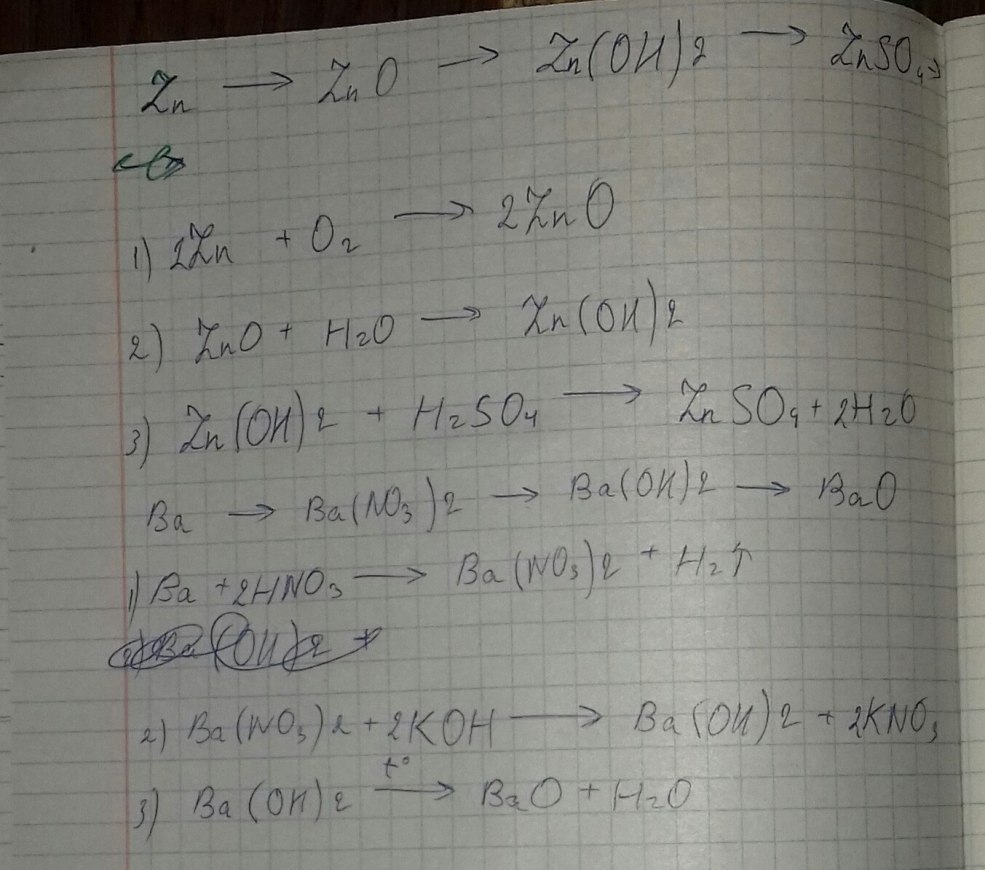 Zn → ZnO → Zn(OH)2 → ZnSO4→
1) 2Zn + O2 → 2ZnO
2) ZnO + H2O → Zn(OH)2
3) Zn(OH)2 + H2SO4 → ZnSO4 + 2H2O
Ba → Ba(NO3)2 → Ba(OH)2 → BaO
1) Ba + 2HNO3 → Ba(NO3)2 + H2↑
2) Ba(OH)2 +
2) Ba(NO3)2 + 2KOH → Ba(OH)2 + 2KNO3
3) Ba(OH)2 t°→ BaO + H2O